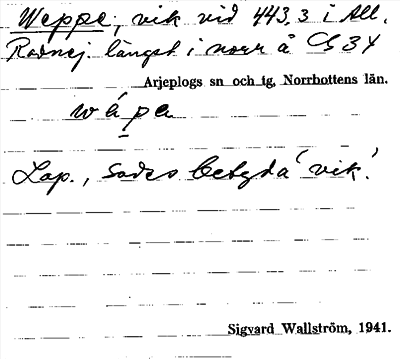 Weppe, vik vid 443,3 i All.
Radnej. längst i norr å GS 34
Arjeplogs sn och tg, Norrbottens län.
wápa
Lap., sades betyda 'vik'.
Sigvard Wallström, 1941.